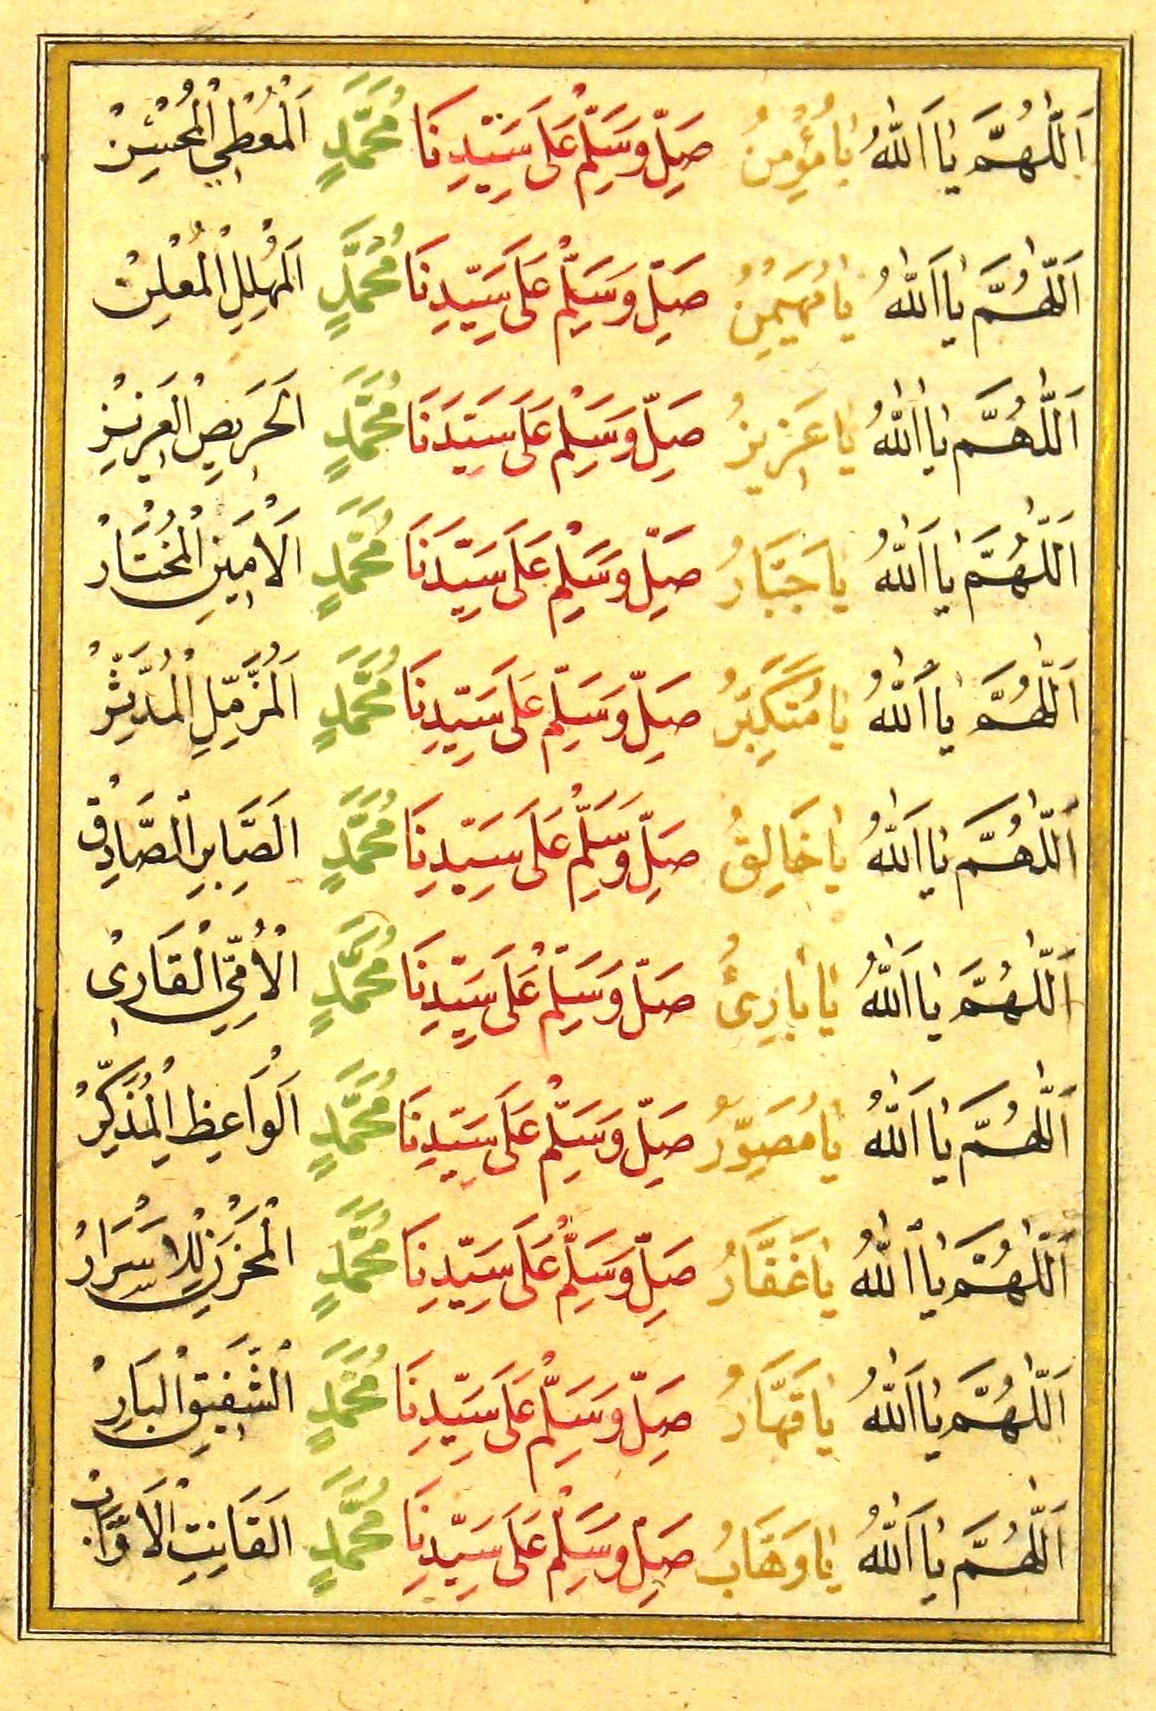 اَللّٰهُمَّ يَا اَللّٰهُ يَا مُؤْمِنُ صَلِّ وَسَلِّمْ عَلَى سَيِّدِنَا مُحَمَّدٍ اَلْمُعْطِي الْمُحْسِنْ
اَللّٰهُمَّ يَا اَللّٰهُ يَا مُهَيْمِنُ صَلِّ وَسَلِّمْ عَلَى سَيِّدِنَا مُحَمَّدٍ اَلْمُهَلِّلِ الْمُعْلِنْ
اَللّٰهُمَّ يَا اَللّٰهُ يَا عَزِيزُ صَلِّ وَسَلِّمْ عَلَى سَيِّدِنَا مُحَمَّدٍ اَلْحَرِيصِ الْعَزِيزْ
اَللّٰهُمَّ يَا اَللّٰهُ يَا جَبَّارُ صَلِّ وَسَلِّمْ عَلَى سَيِّدِنَا مُحَمَّدٍ اَلْاَمِينِ الْمُخْتَارْ
اَللّٰهُمَّ يَا اَللّٰهُ يَا مُتَكَبِّرُ صَلِّ وَسَلِّمْ عَلَى سَيِّدِنَا مُحَمَّدٍ اَلْمُزَّمِّلِ الْمُدَّثِّرْ
اَللّٰهُمَّ يَا اَللّٰهُ يَا خَالِقُ صَلِّ وَسَلِّمْ عَلَى سَيِّدِنَا مُحَمَّدٍ اَلصَّابِرِ الصَّادِقْ
اَللّٰهُمَّ يَا اَللّٰهُ يَا بَارِئُ صَلِّ وَسَلِّمْ عَلَى سَيِّدِنَا مُحَمَّدٍ الْاُمِّيِّ الْقَارِئْ
اَللّٰهُمَّ يَا اَللّٰهُ يَا مُصَوِّرُ صَلِّ وَسَلِّمْ عَلَى سَيِّدِنَا مُحَمَّدٍ اَلْوَاعِظِ الْمُذَكِّرْ
اَللّٰهُمَّ يَا اَللّٰهُ يَا غَفَّارُ صَلِّ وَسَلِّمْ عَلَى سَيِّدِنَا مُحَمَّدٍ الْمَخْزَنِ لِلْاَسْرَارْ
اَللّٰهُمَّ يَا اَللّٰهُ يَا قَهَّارُ صَلِّ وَسَلِّمْ عَلَى سَيِّدِنَا مُحَمَّدٍ الشَّفِيقِ الْبَارِّ
اَللّٰهُمَّ يَا اَللّٰهُ يَا وَهَّابُ صَلِّ وَسَلِّمْ عَلَى سَيِّدِنَا مُحَمَّدٍ الْقَانِتِ الْاَوَّابْ